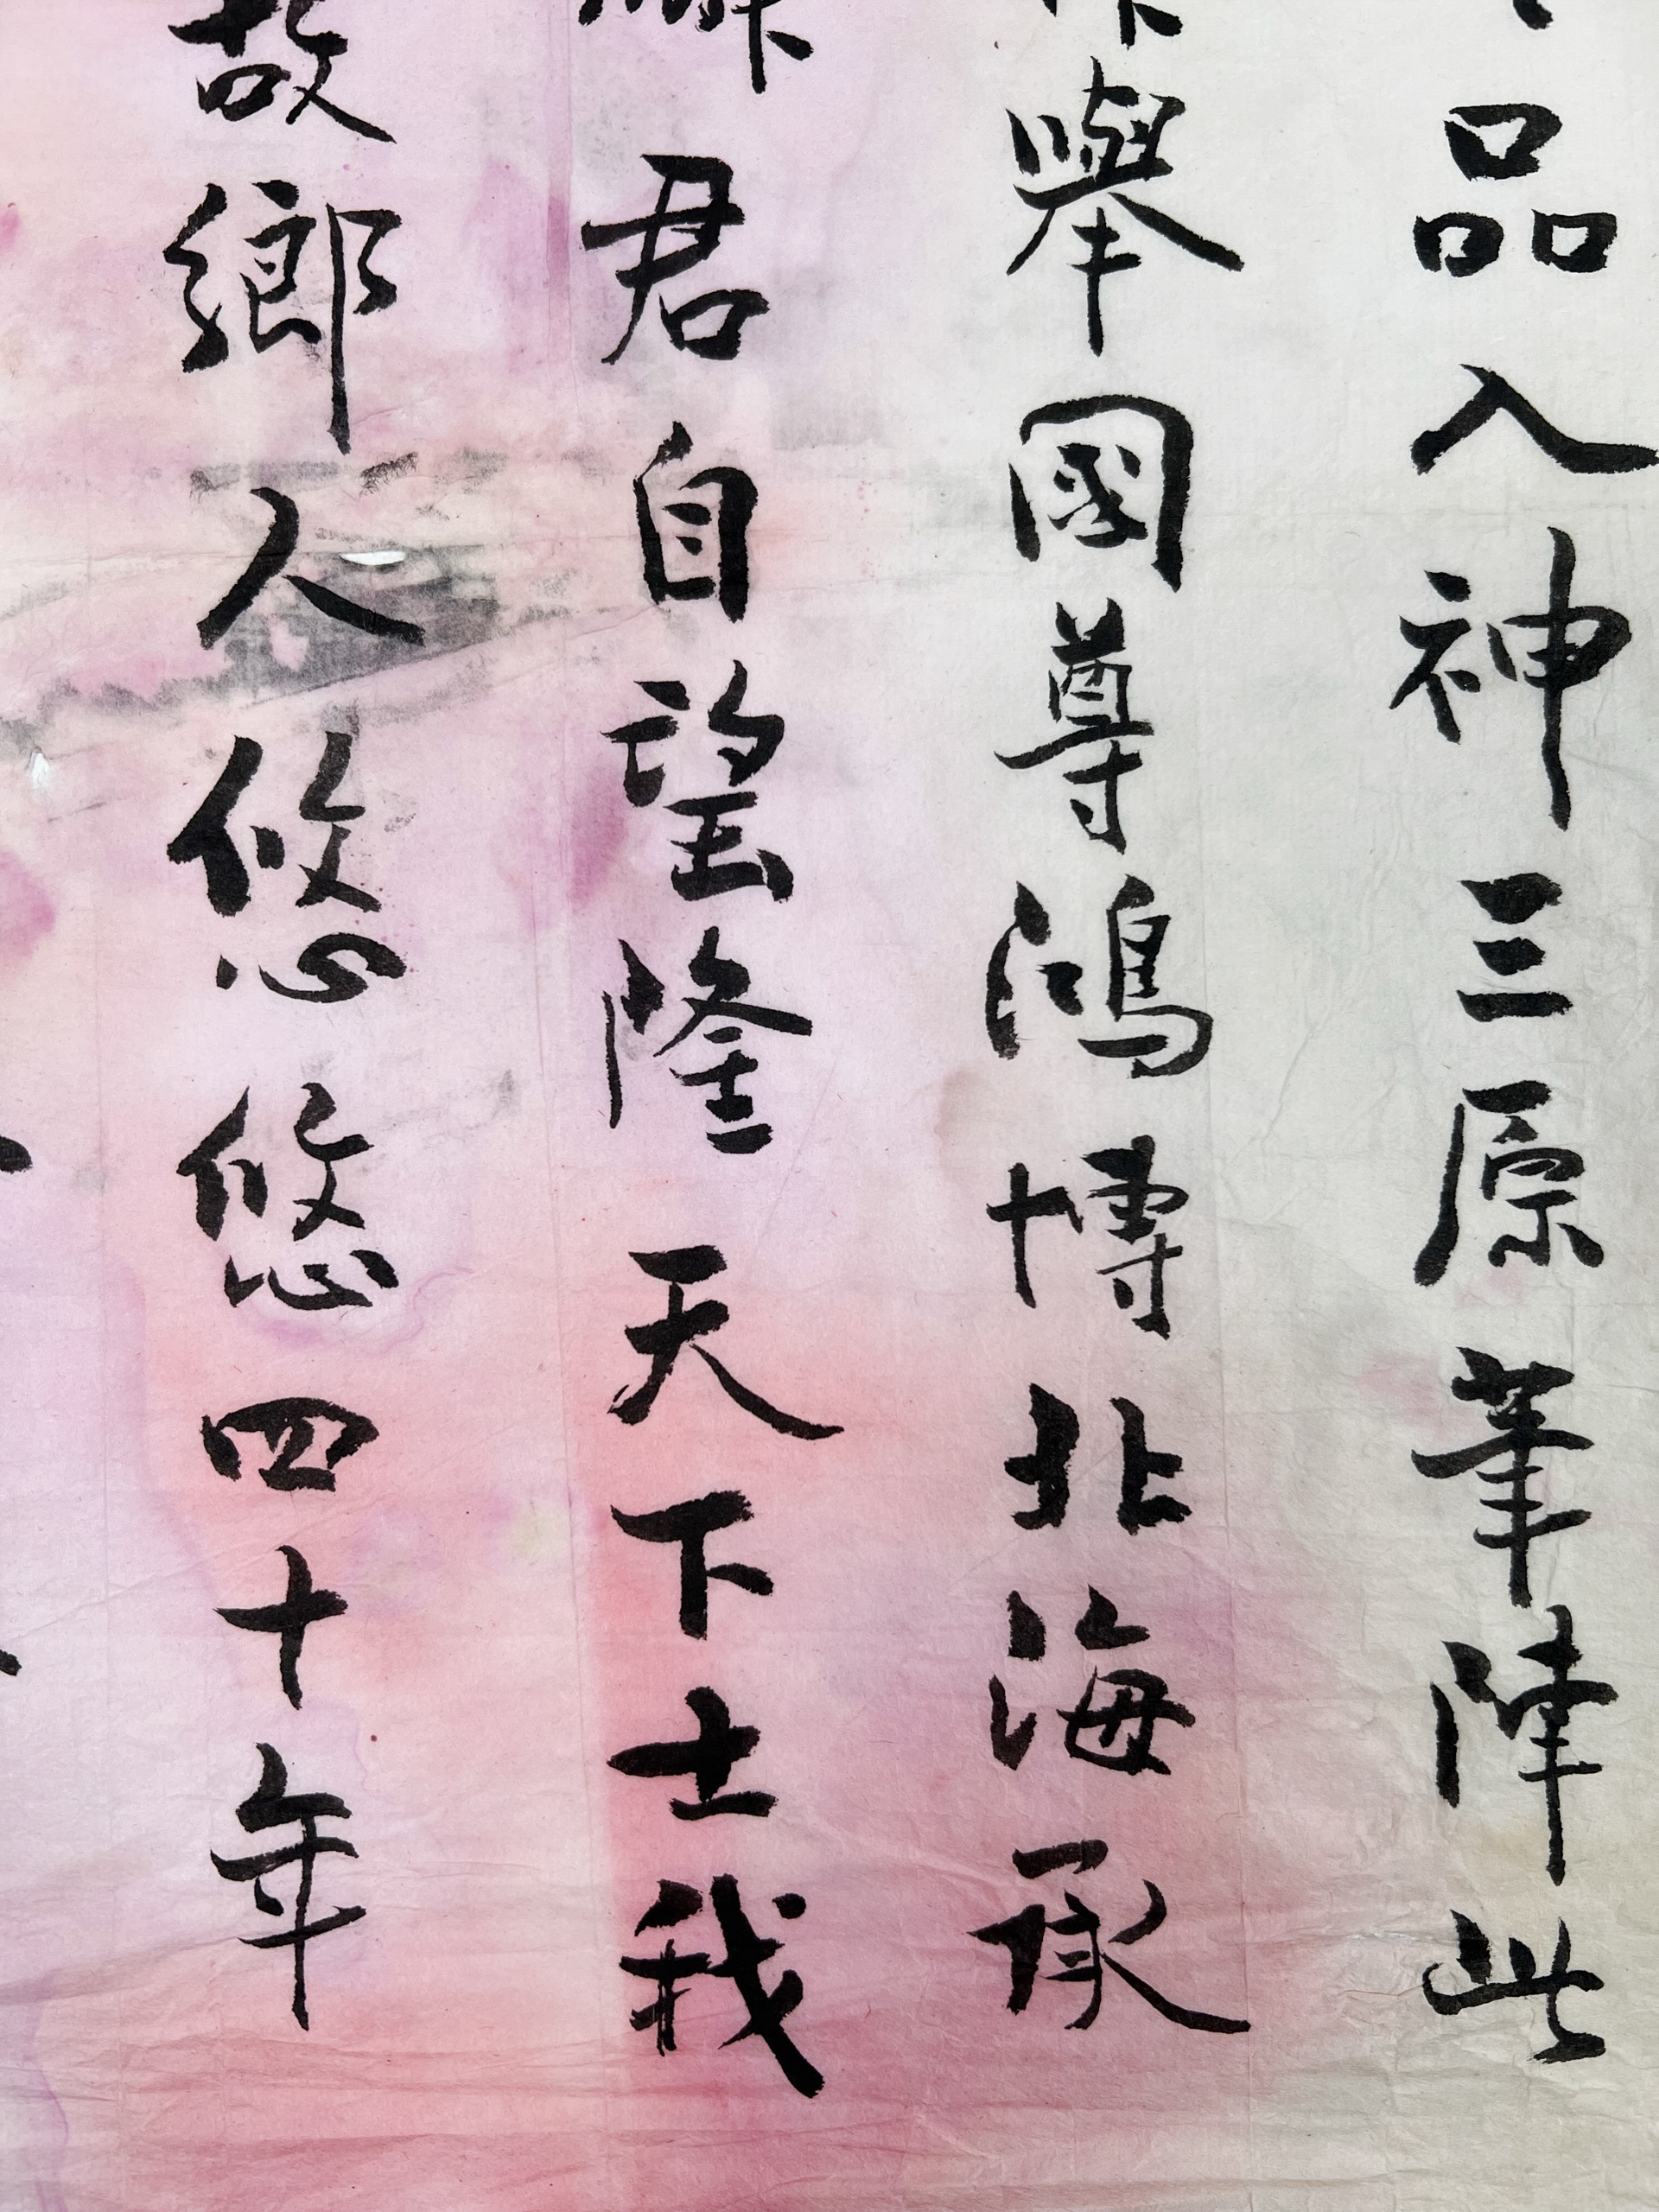 品入神三原筆陣此
舉國尊鴻博北海承
君自望隆天下士我
故鄉人悠悠四十年